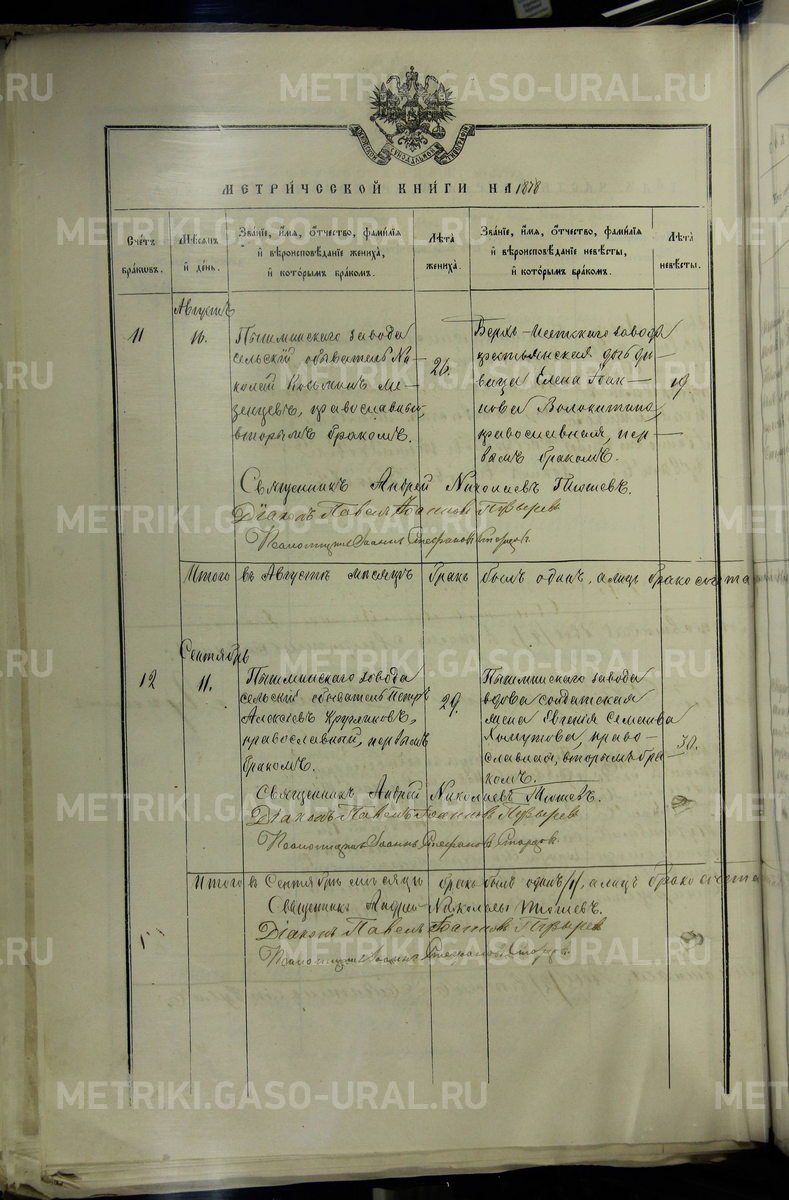 METRIKI.GASO-URAL.RU
МЕТРИ́ЧЕССКОЙ КНИ́ГИ НА 1878
Сче́тъ бра́ковъ.
Мѣ́сяцъ и҆ де́нь.
Зва́нїе, и҆́мѧ, ѻ҆́тчество, фами́лїѧ
и҆ вѣроисповѣ́данїе жениха̀,
и҆ кото́рымъ бра́комъ.
Лѣта̀ жениха̀.
Зва́нїе, и҆́мѧ, ѻ҆́тчество, фами́лїѧ
и҆ вѣроисповѣ́данїе невѣ́сты,
и҆ кото́рымъ бра́комъ.
Лѣта̀ невѣ́сты.
Августъ
11
16.
Пышминскаго завода
сельскій обыватель Ни-
колай Козьминъ Ме-
зенцевъ, православный,
вторымъ бракомъ.
26.
Верхъ-Исетскаго завода
крестьянская дочь дѣ-
вица Елена Іоан-
нова Волокитина,
православная, пер-
вымъ бракомъ.
19.
Священникъ Андрей Николаевъ Тюшевъ.
Діаконъ Павелъ Іоанновъ Пузыревъ
Псаломщикъ Іоаннъ Стефановъ
Итого въ Августѣ мѣсяцѣ бракъ былъ одинъ, а лицъ бракосочета
Сентябрь
12
11.
Пышминскаго завода
сельскій обыватель Петръ
Алексѣевъ Кругляковъ,
православный, первымъ
бракомъ.
29.
Пышминскаго завода
вдова солдатская
жена Евгенія Семенова
Хомутова, право-
славная, вторымъ бра-
комъ.
30.
Священникъ Андрей Николаевъ Тюшевъ.
Діаконъ Павелъ Іоанновъ Пузыревъ
Псаломщикъ Іоаннъ Стефановъ
Итого въ Сентябрѣ мѣсяцѣ бракъ былъ одинъ /1/, а лицъ бракосочета
Священникъ Андрей Николаевъ Тюшевъ.
Діаконъ Павелъ Іоанновъ Пузыревъ
Псаломщикъ Іоаннъ Стефановъ